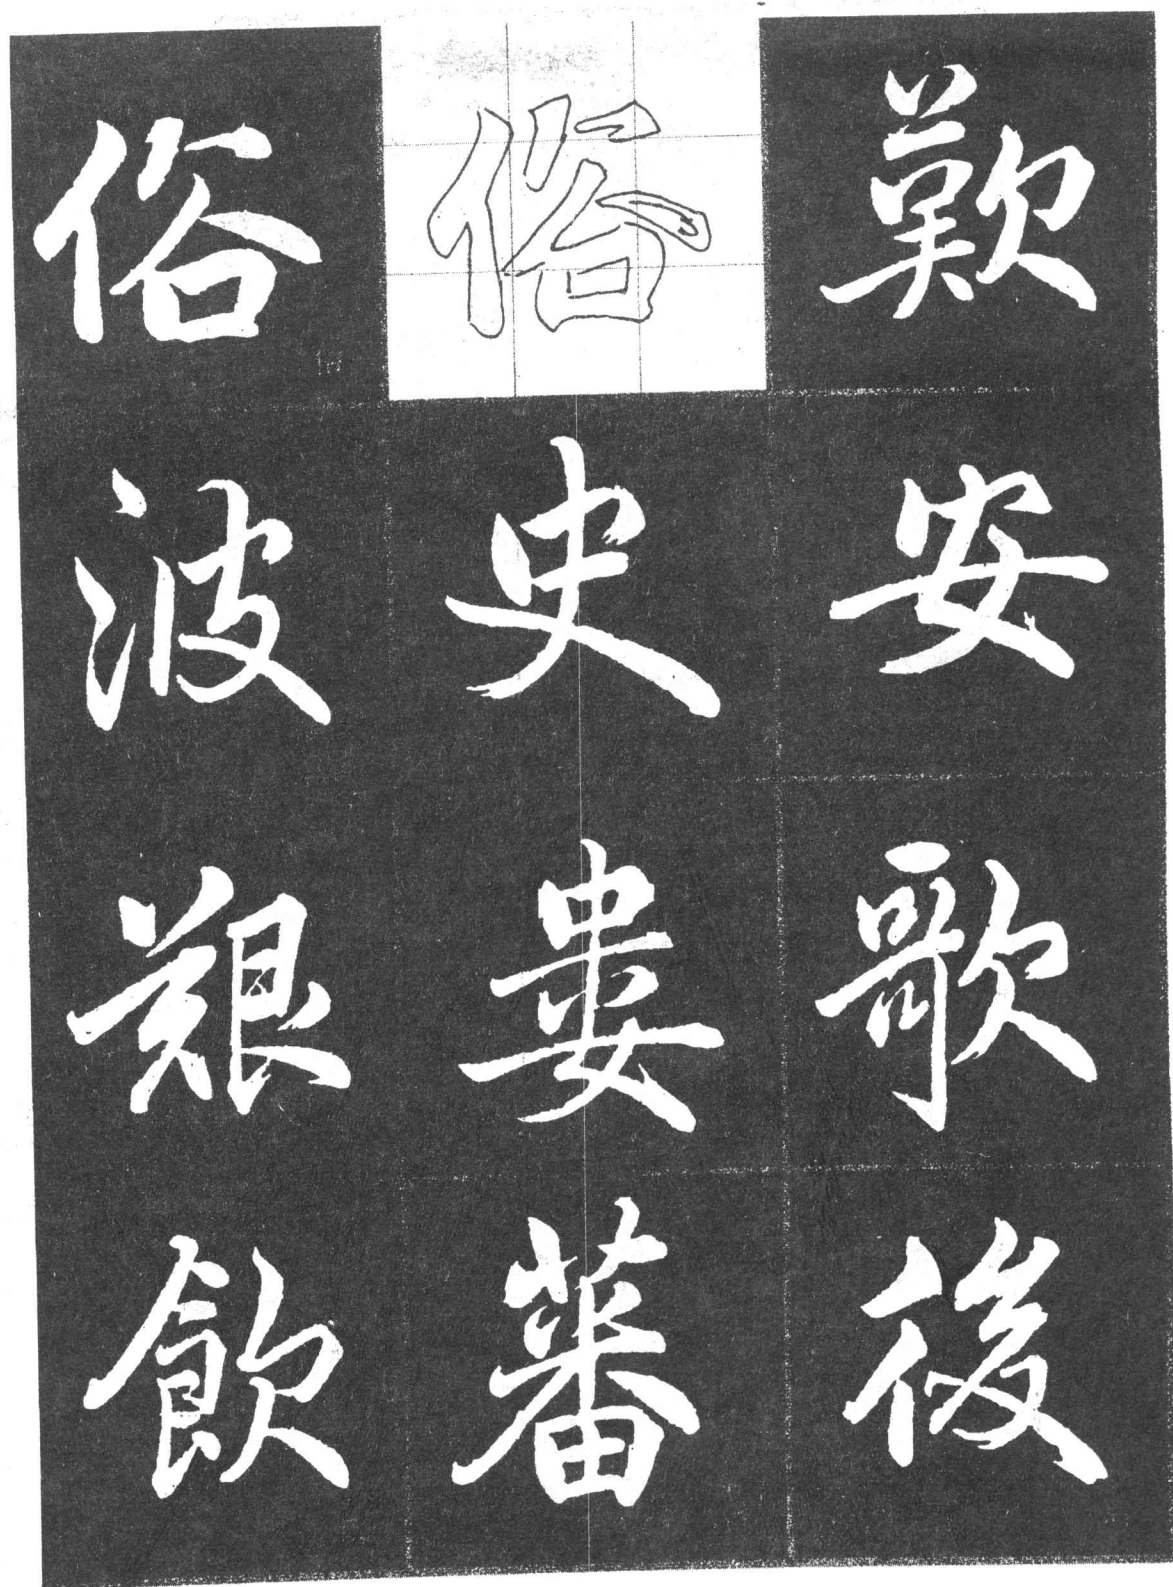 歎安歌後
俗史婁蕃
俗波艱飲